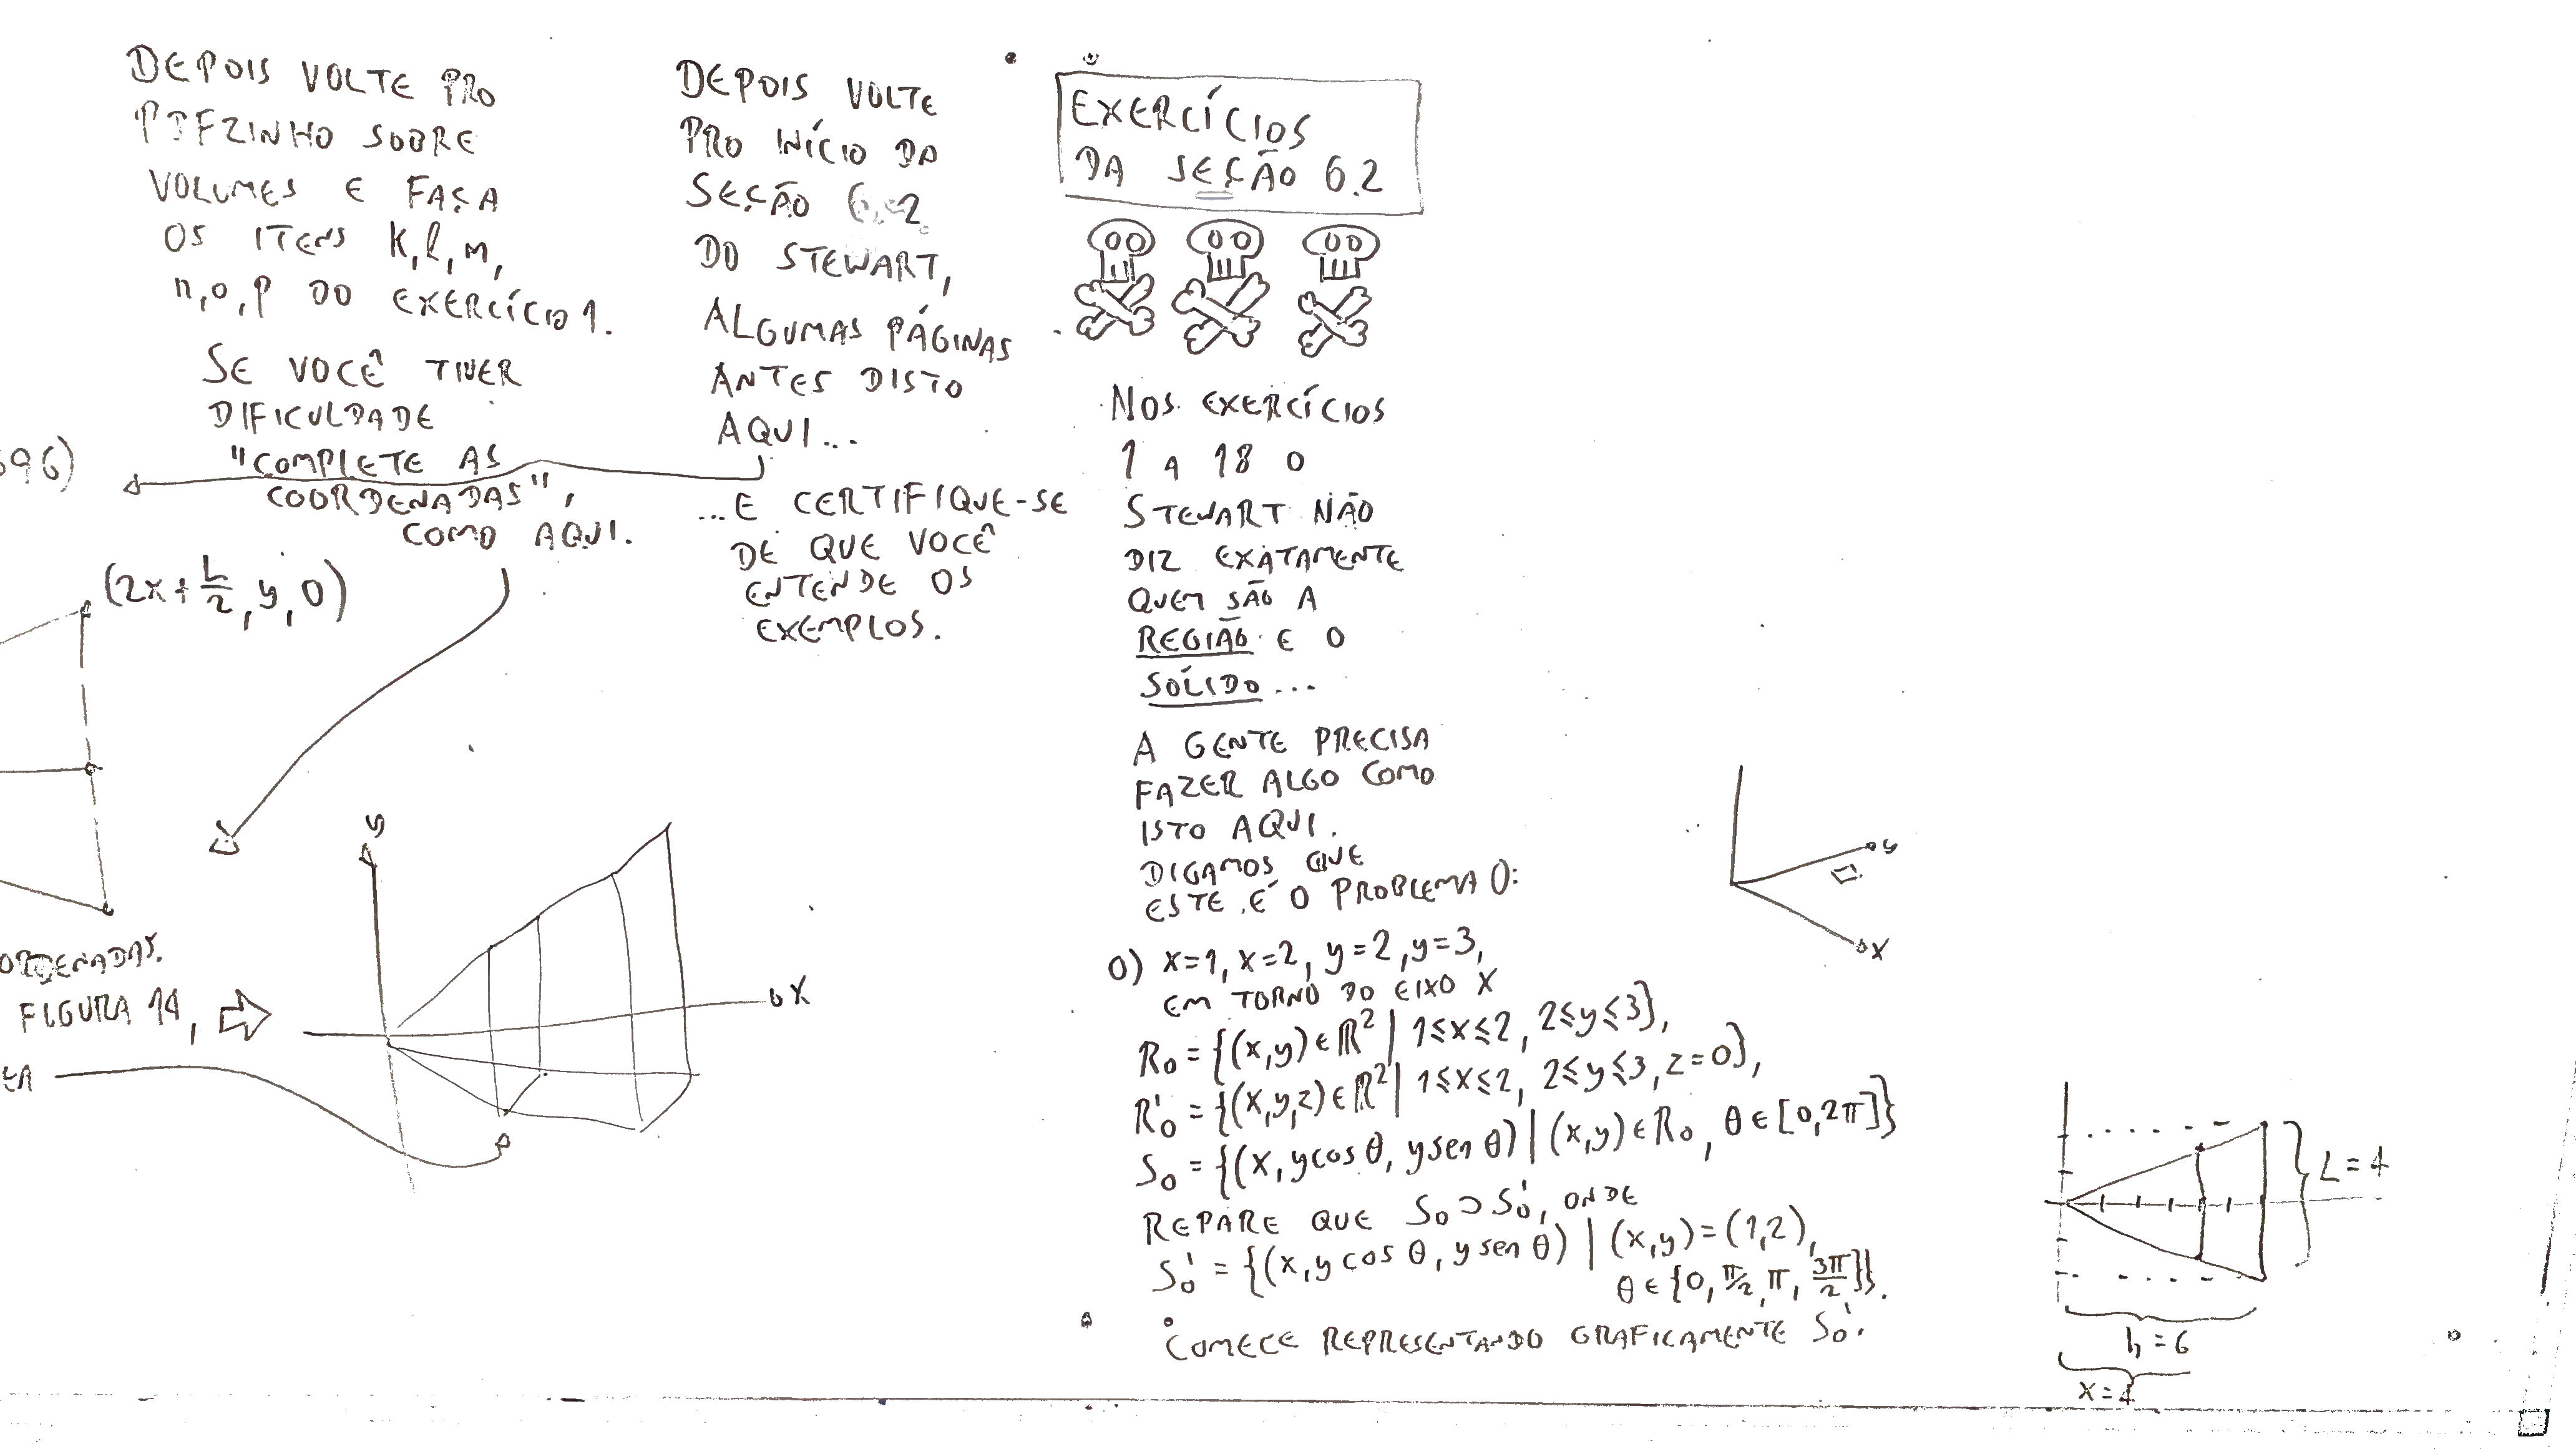 DEPOIS VOLTE PRO
PDFZINHO SOBRE
VOLUMES E FAÇA
OS ITENS k, l, m,
n, o, p DO EXERCÍCIO 1.
SE VOCÊ TIVER
DIFICULDADE
"COMPLETE AS
COORDENADAS",
COMO AQUI.
696)
(2x+L/2, y, 0)
ORDENADAS.
FIGURA 14,
y
x
DEPOIS VOLTE
PRO INÍCIO DA
SEÇÃO 6.2
DO STEWART,
ALGUMAS PÁGINAS
ANTES DISTO
AQUI...
...E CERTIFIQUE-SE
DE QUE VOCÊ
ENTENDE OS
EXEMPLOS.
EXERCÍCIOS
DA SEÇÃO 6.2
NOS EXERCÍCIOS
1 A 18 O
STEWART NÃO
DIZ EXATAMENTE
QUEM SÃO A
REGIÃO E O
SÓLIDO...
A GENTE PRECISA
FAZER ALGO COMO
ISTO AQUI.
DIGAMOS QUE
ESTE É O PROBLEMA 0:
0) x=1, x=2, y=2, y=3,
EM TORNO DO EIXO X
R₀ = {(x,y)∈ℝ² | 1≤x≤2, 2≤y≤3},
R₀' = {(x,y,z)∈ℝ² | 1≤x≤2, 2≤y≤3, z=0},
S₀ = {(x, y cos θ, y sen θ) | (x,y)∈R₀, θ∈[0,2π]}
REPARE QUE S₀⊃S₀', ONDE
S₀' = {(x, y cos θ, y sen θ) | (x,y)=(1,2),
θ∈{0, π/2, π, 3π/2}}.
COMECE REPRESENTANDO GRAFICAMENTE S₀'.
y
x
L=4
h=6
x=4